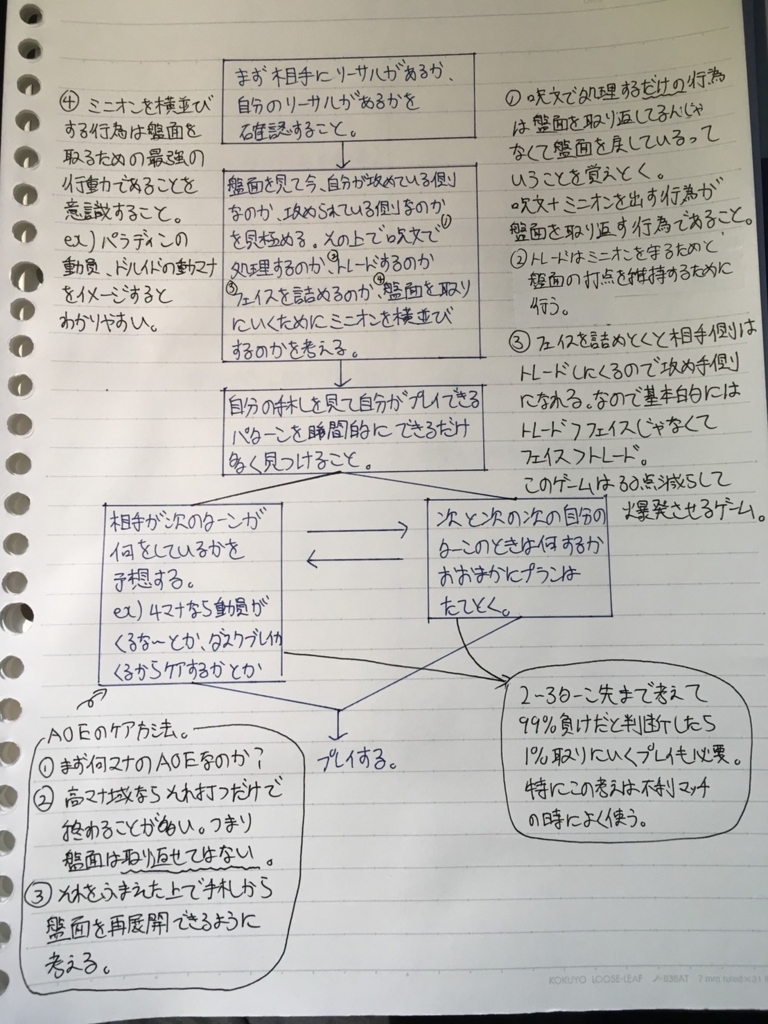 まず相手にリーサルがあるか、
自分のリーサルがあるかを
確認すること。
盤面を見て今、自分が攻めている側
なのか、攻められている側なのか
を見極める。その上で①呪文で
処理するのか、②トレードするのか
③フェイスを詰めるのか、④盤面を取り
にいくためにミニオンを横並び
するのかを考える。
自分の手札を見て自分がプレイできる
パターンを瞬間的にできるだけ
多く見つけること。
相手が次のターンが
何をしているかを
予想する。
ex) 4マナなら動員が
くるな〜とか、ダスクブレイカ
くるからケアするかとか
次と次の次の自分の
ターンのときは何するか
おおまかにプランは
たてとく。
プレイする。
④ ミニオンを横並び
する行為は盤面を
取るための最強の
行動であることを
意識すること。
ex) パラディンの
動員、ドルイドの動マナ
をイメージすると
わかりやすい。
① 呪文で処理するだけの行為
は盤面を取り返してるんじゃ
なくて盤面を戻しているって
いうことを覚えとく。
呪文+ミニオンを出す行為が
盤面を取り返す行為であること。
② トレードはミニオンを守るためと
盤面の打点を維持するために
行う。
③ フェイスを詰めとくと相手側は
トレードしにくるので攻め手側
になれる。なので基本的には
トレード>フェイスじゃなくて
フェイス>トレード。
このゲームは30点減らして
爆発させるゲーム。
AOEのケア方法。
① まず何マナのAOEなのか?
② 高マナ域ならそれ打つだけで
終わることが多い。つまり
盤面は取り返せてはない。
③ それをふまえた上で手札から
盤面を再展開できるように
考える。
2-3ターン先まで考えて
99%負けだと判断したら
1%取りにいくプレイも必要。
特にこの考えは不利マッチ
の時によく使う。
KOKUYO LOOSE-LEAF